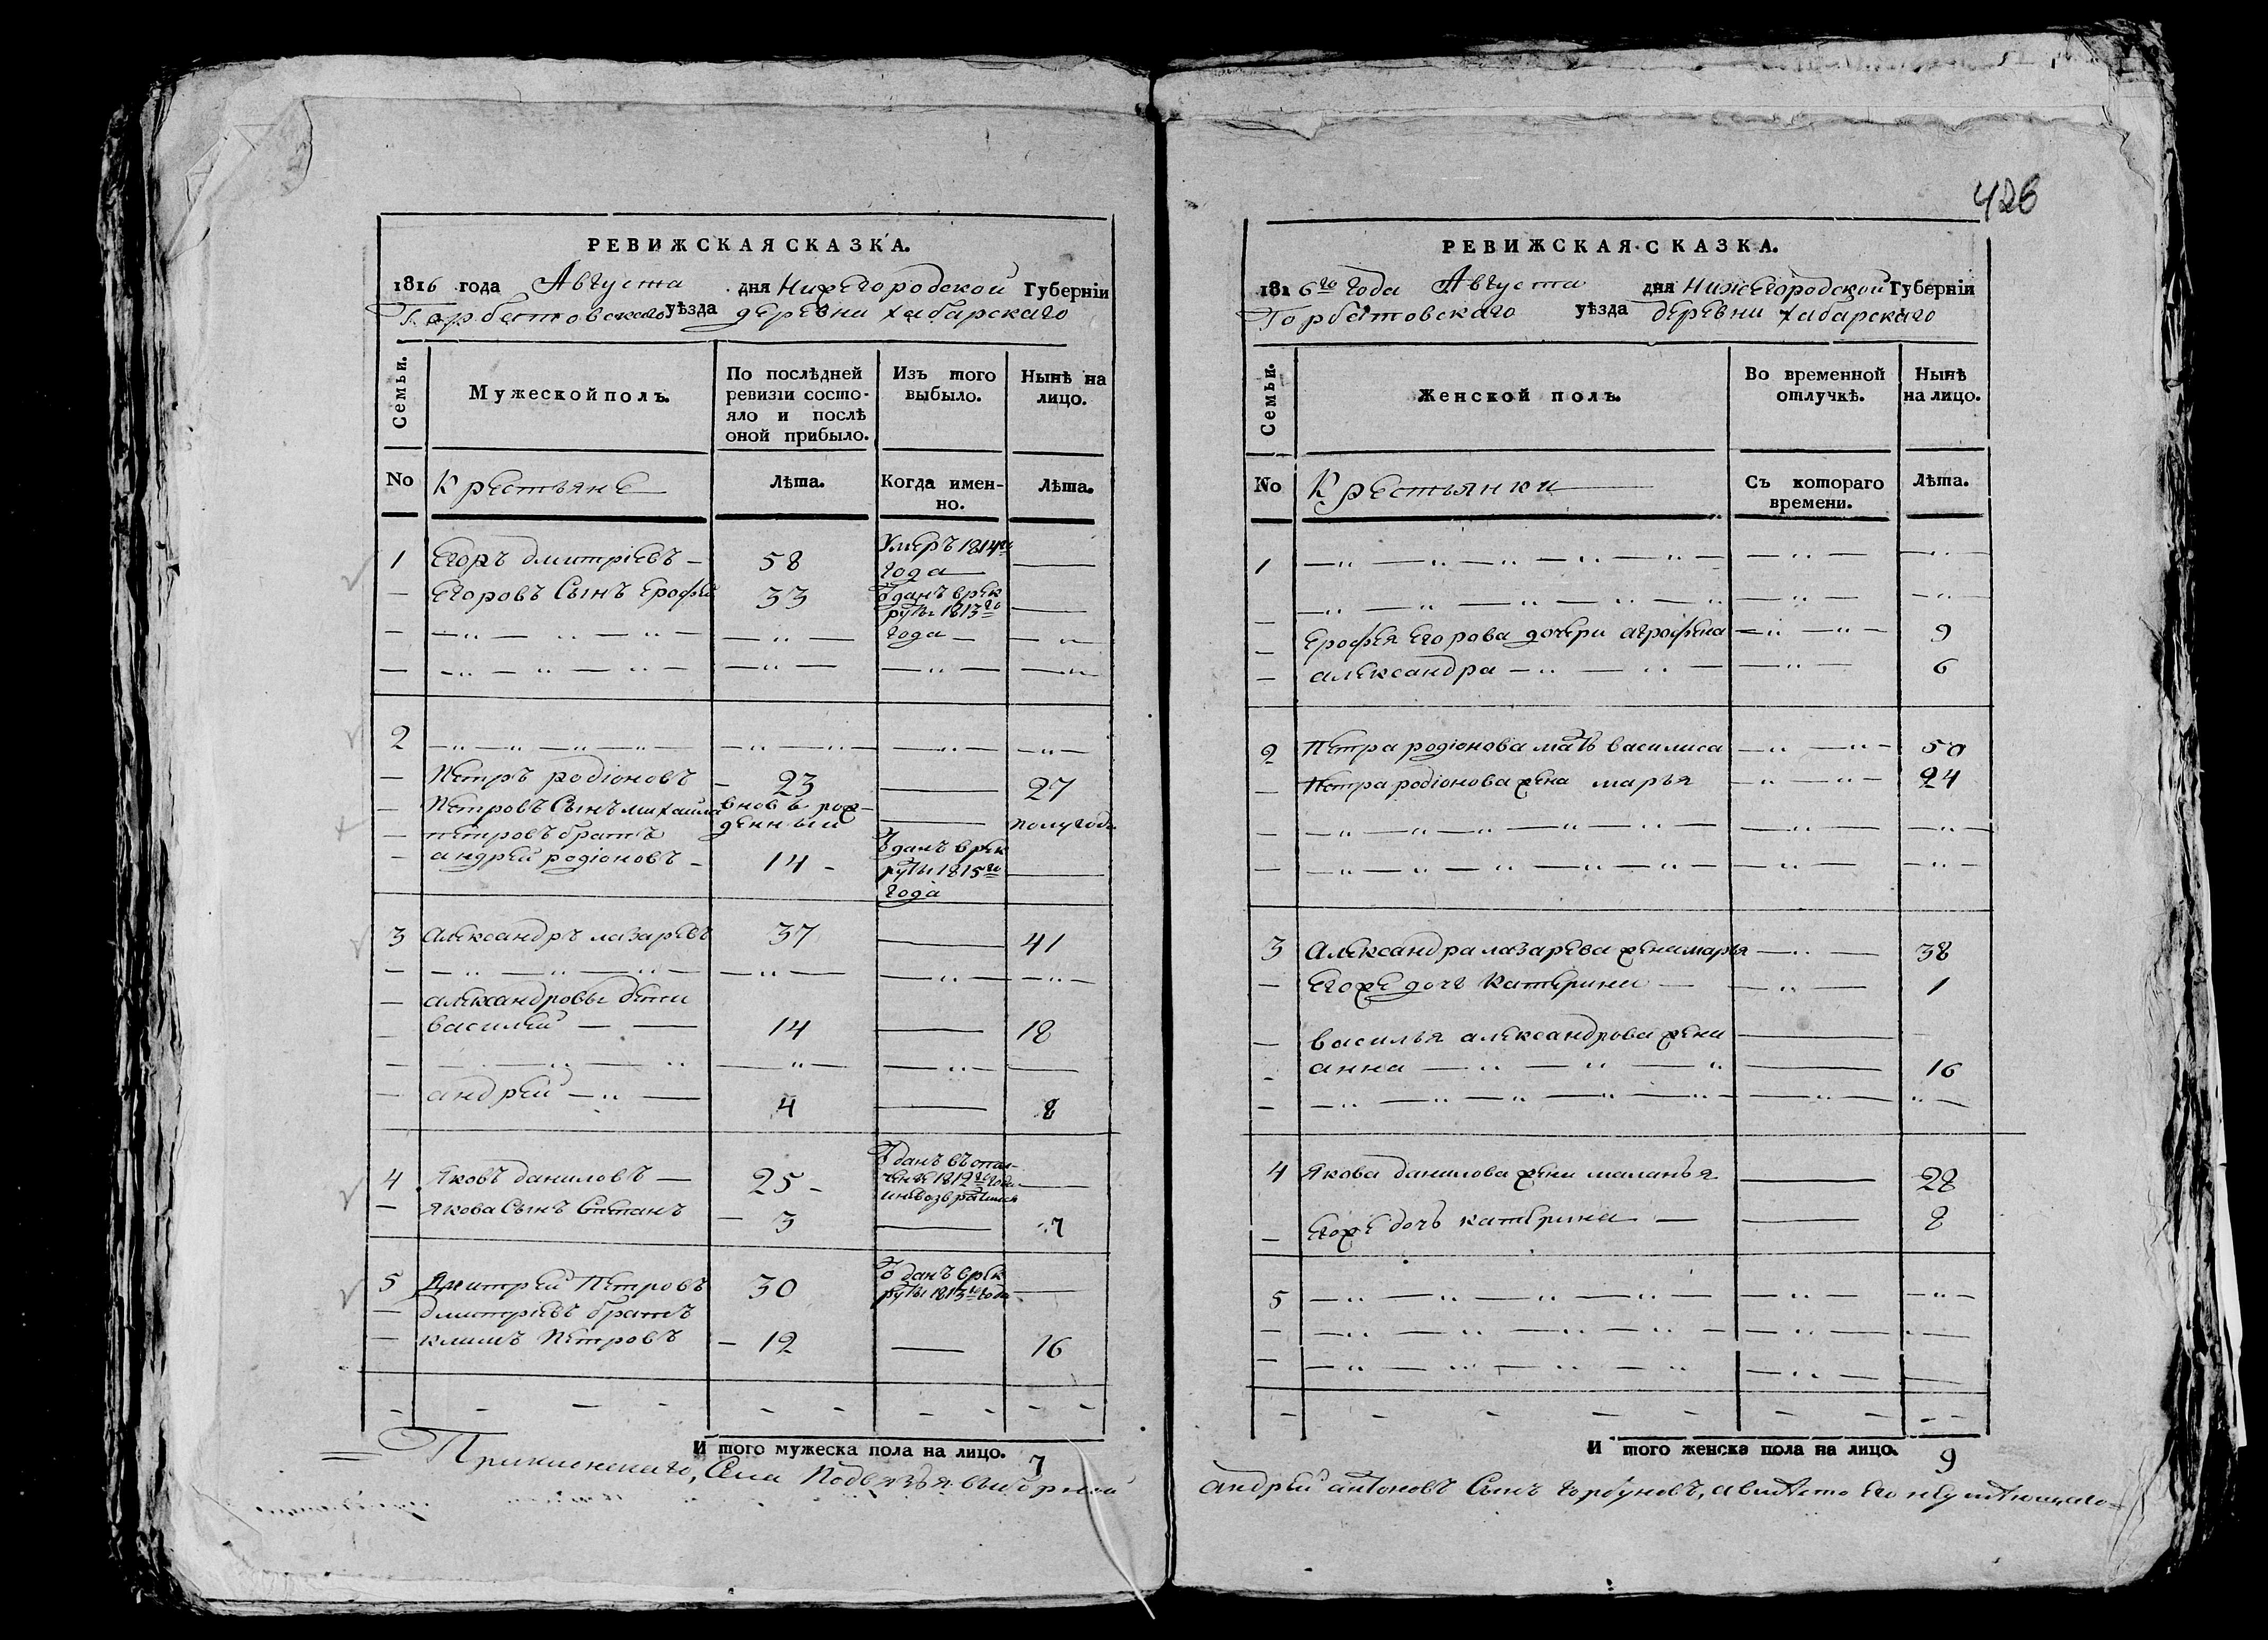 РЕВИЖСКАЯ СКАЗКА.
1816 года Августа дня Нижегородской Губерніи
Горбатовскаго уѣзда деревни Хабарскаго
Семьи.
Мужеской полъ.
По послѣдней ревизіи состояло и послѣ оной прибыло.
Изъ того выбыло.
Нынѣ на лицо.
No Крестьяне Лѣта. Когда именно. Лѣта.
1 Егоръ дмитріевъ 58 Умеръ 1814го года
Егоровъ Сынъ Ерофей 33 Отданъ в рекруты 1813го года
2
Петръ родіоновъ 23 27
Петровъ Сынъ михайла вновь рожденный полугода
петровъ братъ
андрей родіоновъ 14 Отданъ в рекруты 1815го года
3 Александръ лазаревъ 37 41
александровы дети
василей 14 18
андрей 4 8
4 Яковъ даниловъ 25 Отданъ въ ополченіе 1812го года
Якова Сынъ Степанъ 3 7
5 Дмитрей Петровъ 30 Отданъ в рекруты 1813го года
дмитріевъ братъ
климъ Петровъ 12 16
И того мужеска пола на лицо. 7
Села Подвязья выборной
426
РЕВИЖСКАЯ СКАЗКА.
1816го года Августа дня Нижегородской Губерніи
Горбатовскаго уѣзда деревни Хабарскаго
Семьи.
Женской полъ.
Во временной отлучкѣ.
Нынѣ на лицо.
No Крестьянки Съ котораго времени. Лѣта.
1
Ерофея Егорова дочери агрофена 9
александра 6
2 Петра родіонова мать василиса 50
Петра родіонова жена марья 24
3 Александра лазарева жена марья 38
Егоже дочь катерина 1
василья александрова жена
анна 16
4 Якова данилова жена маланья 28
Егоже дочь катерина 8
5
И того женска пола на лицо. 9
андрей антоновъ Сынъ горбуновъ, а вместо его неумеющаго